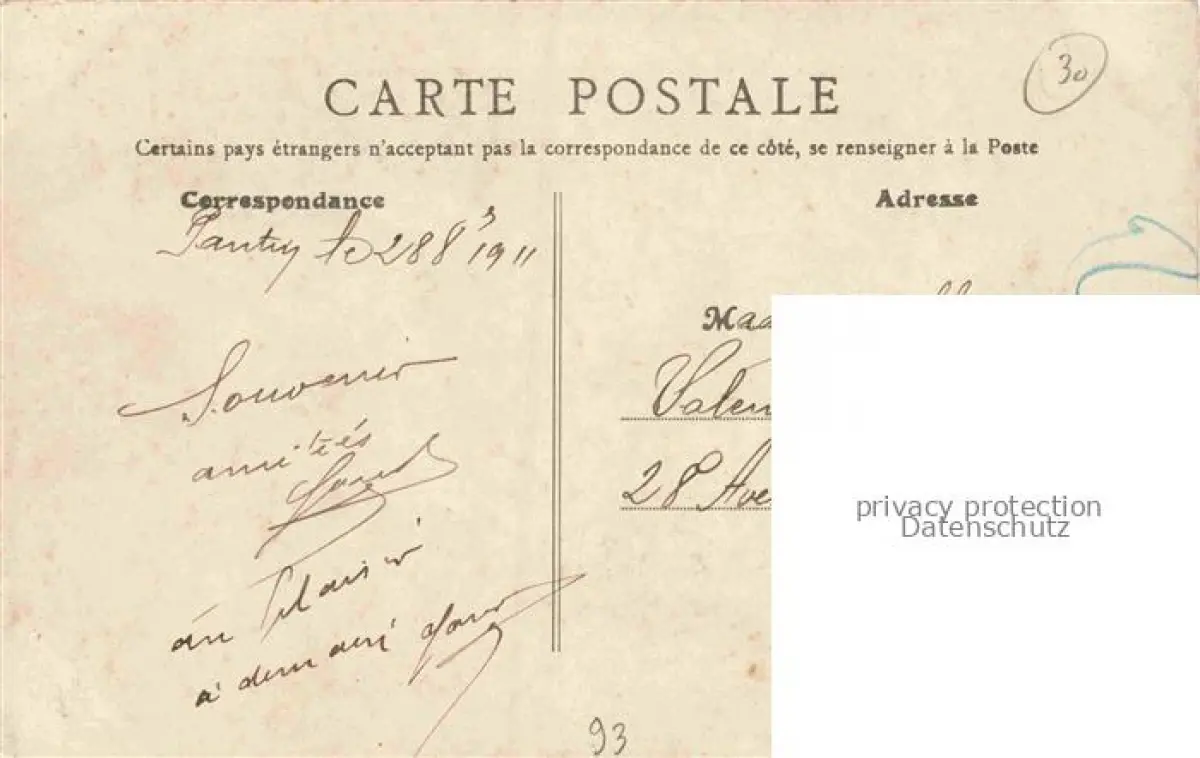 30
CARTE POSTALE
Certains pays étrangers n'acceptant pas la correspondance de ce côté, se renseigner à la Poste
Correspondance
Adresse
Pantin le 28 8 1911
Souvenir
amitiés
au Plaisir
à demain
Maa
Valen
28 Ave
privacy protection
Datenschutz
93